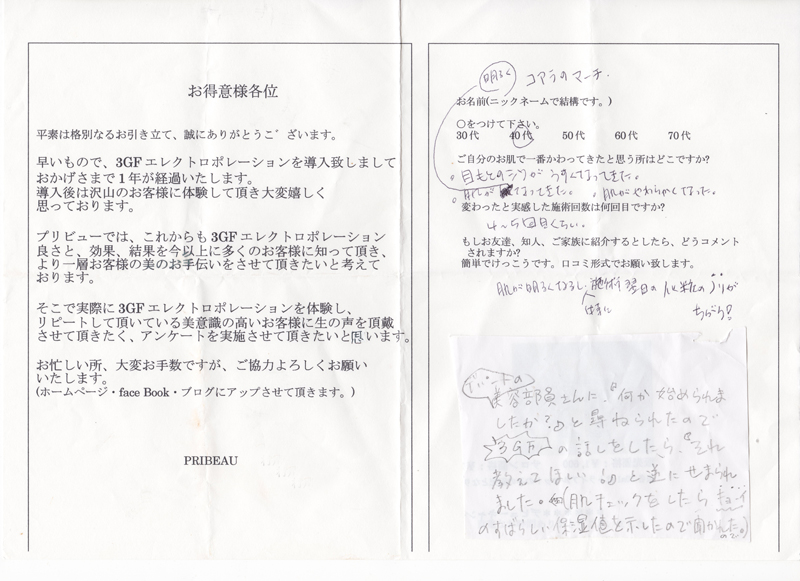 お得意様各位
平素は格別なるお引き立て、誠にありがとうございます。
早いもので、3GF エレクトロポレーションを導入致しまして
おかげさまで 1 年が経過いたします。
導入後は沢山のお客様に体験して頂き大変嬉しく
思っております。
プリビューでは、これからも 3GF エレクトロポレーション
良さと、効果、結果を今以上に多くのお客様に知って頂き、
より一層お客様の美のお手伝いをさせて頂きたいと考えて
おります。
そこで実際に 3GF エレクトロポレーションを体験し、
リピートして頂いている美意識の高いお客様に生の声を頂戴
させて頂きたく、アンケートを実施させて頂きたいと思います。
お忙しい所、大変お手数ですが、ご協力よろしくお願い
いたします。
(ホームページ・face Book・ブログにアップさせて頂きます。)
PRIBEAU
明るく
コアラのマーチ.
お名前(ニックネームで結構です。)
○をつけて下さい。
30代 40代 50代 60代 70代
ご自分のお肌で一番かわってきたと思う所はどこですか?
。目もとのシワがうすくなってきた。
。肌が なってきた。 。肌がやわらかくなった。
変わったと実感した施術回数は何回目ですか?
4〜5回目くらい.
もしお友達、知人、ご家族に紹介するとしたら、どうコメント
されますか?
簡単でけっこうです。口コミ形式でお願い致します。
肌が明るくなるし、施術翌日の化粧のノリが
ちがう!
デパートの
美容部員さんに、『何か始められま
したか?』と尋ねられたので
3GF の話しをしたら、『それ
教えてほしい』と逆にせまられ
ました。(肌チェックをしたら
のすばらしい保湿値を示したので聞かれたので。)